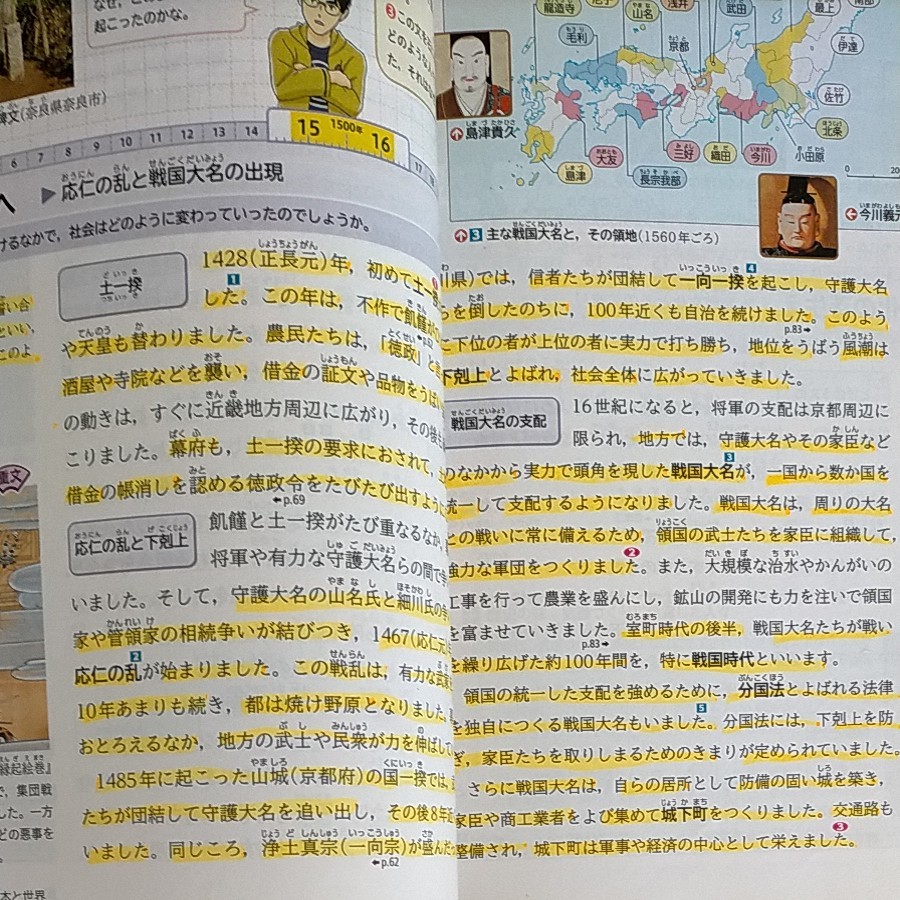 起こったのかな。
碑文(奈良県奈良市)
❸この
どのような
た,それに
6 7 8 9 10 11 12 13 14 15 1500年 16 17
▶応仁の乱と戦国大名の出現
けるなかで,社会はどのように変わっていったのでしょうか。
土一揆
1428(正長元)年,初めて土一
した。この年は,不作で飢饉が
や天皇も替わりました。農民たちは,「徳政」と
酒屋や寺院などを襲い,借金の証文や品物をうば
の動きは,すぐに近畿地方周辺に広がり,その後も
こりました。幕府も,土一揆の要求におされて,
借金の帳消しを認める徳政令をたびたび出すように
←p.69
応仁の乱と下剋上
飢饉と土一揆がたび重なるなか,
将軍や有力な守護大名らの間で
いました。そして,守護大名の山名氏と細川氏の
家や管領家の相続争いが結びつき,1467(応仁元)
応仁の乱が始まりました。この戦乱は,有力な
10年あまりも続き,都は焼け野原となりました。
おとろえるなか,地方の武士や民衆が力を伸ばして
1485年に起こった山城(京都府)の国一揆では,
たちが団結して守護大名を追い出し,その後8年
いました。同じころ,浄土真宗(一向宗)が盛んだ
←p.62
縁起絵巻』
で,集団戦
した。一方
どの悪事を
本と世界
龍造寺
山名
浅井
武田
最上
毛利
京都
伊達
佐竹
北条
小田原
島津
大友
長宗我部
三好
織田
今川
島津貴久
今川義元
3 主な戦国大名と,その領地(1560年ごろ)
川県)では,信者たちが団結して一向一揆を起こし,守護大名
らを倒したのちに,100年近くも自治を続けました。このよう
p.83→
に下位の者が上位の者に実力で打ち勝ち,地位をうばう風潮は
下剋上とよばれ,社会全体に広がっていきました。
戦国大名の支配
16世紀になると,将軍の支配は京都周辺に
限られ,地方では,守護大名やその家臣など
のなかから実力で頭角を現した戦国大名が,一国から数か国を
統一して支配するようになりました。戦国大名は,周りの大名
との戦いに常に備えるため,領国の武士たちを家臣に組織して,
強力な軍団をつくりました。また,大規模な治水やかんがいの
工事を行って農業を盛んにし,鉱山の開発にも力を注いで領国
を富ませていきました。室町時代の後半,戦国大名たちが戦い
p.83→
を繰り広げた約100年間を,特に戦国時代といいます。
領国の統一した支配を強めるために,分国法とよばれる法律
を独自につくる戦国大名もいました。分国法には,下剋上を防
ぎ,家臣たちを取りしまるためのきまりが定められていました。
さらに戦国大名は,自らの居所として防備の固い城を築き,
家臣や商工業者をよび集めて城下町をつくりました。交通路も
整備され,城下町は軍事や経済の中心として栄えました。